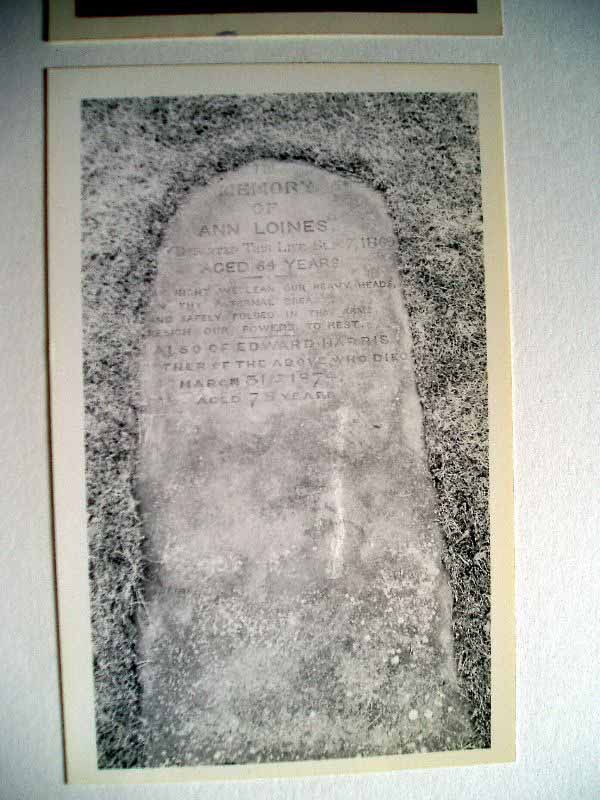 MEMORY
OF
ANN LOINES
DEPARTED THIS LIFE 7, 1869
AGED 64 YEARS
NIGHT WE LEAN OUR HEAVY HEADS,
THY
AND SAFELY FOLDED IN THY ARMS
RESIGN OUR POWERS TO REST.
ALSO OF EDWARD HARRIS
THER OF THE ABOVE WHO DIED
MARCH 31ST 187
AGED 78 YEARS